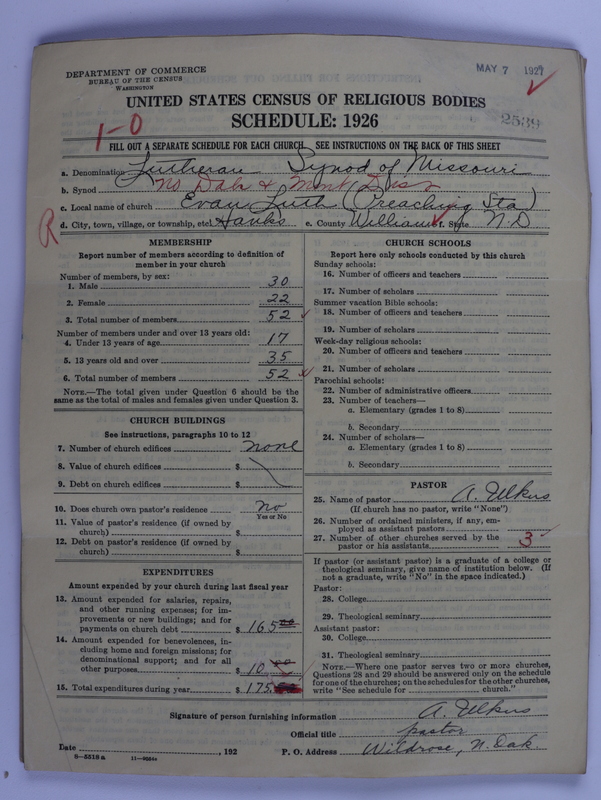 DEPARTMENT OF COMMERCE
BUREAU OF THE CENSUS
WASHINGTON
MAY 7 1927
UNITED STATES CENSUS OF RELIGIOUS BODIES
SCHEDULE: 1926
2539
1-0
FILL OUT A SEPARATE SCHEDULE FOR EACH CHURCH. SEE INSTRUCTIONS ON THE BACK OF THIS SHEET
a. Denomination Lutheran Synod of Missouri
b. Synod No Dak & Mont Dis
c. Local name of church Evan Luth (Preaching Sta)
R
d. City, town, village, or township, etc. Hanks e. County Williams f. State N D
MEMBERSHIP
Report number of members according to definition of
member in your church
Number of members, by sex:
1. Male 30
2. Female 22
3. Total number of members 52
Number of members under and over 13 years old:
4. Under 13 years of age 17
5. 13 years old and over 35
6. Total number of members 52
NOTE.—The total given under Question 6 should be the
same as the total of males and females given under Question 3.
CHURCH BUILDINGS
See instructions, paragraphs 10 to 12
7. Number of church edifices none
8. Value of church edifices $
9. Debt on church edifices $
10. Does church own pastor's residence no
Yes or No
11. Value of pastor's residence (if owned by
church) $
12. Debt on pastor's residence (if owned by
church) $
EXPENDITURES
Amount expended by your church during last fiscal year
13. Amount expended for salaries, repairs,
and other running expenses; for im-
provements or new buildings; and for
payments on church debt $ 165.00
14. Amount expended for benevolences, in-
cluding home and foreign missions; for
denominational support; and for all
other purposes 10.00
15. Total expenditures during year $ 175.00
CHURCH SCHOOLS
Report here only schools conducted by this church
Sunday schools:
16. Number of officers and teachers
17. Number of scholars
Summer vacation Bible schools:
18. Number of officers and teachers
19. Number of scholars
Week-day religious schools:
20. Number of officers and teachers
21. Number of scholars
Parochial schools:
22. Number of administrative officers
23. Number of teachers—
a. Elementary (grades 1 to 8)
b. Secondary
24. Number of scholars—
a. Elementary (grades 1 to 8)
b. Secondary
PASTOR
25. Name of pastor A.
(If church has no pastor, write "None")
26. Number of ordained ministers, if any, em-
ployed as assistant pastors
27. Number of other churches served by the
pastor or his assistants 3
If pastor (or assistant pastor) is a graduate of a college or
theological seminary, give name of institution below. (If
not a graduate, write "No" in the space indicated.)
Pastor:
28. College
29. Theological seminary
Assistant pastor:
30. College
31. Theological seminary
NOTE.—Where one pastor serves two or more churches,
Questions 28 and 29 should be answered only on the schedule
for one of the churches; on the schedules for the other churches,
write "See schedule for church."
Signature of person furnishing information A.
Official title pastor
Date , 192 P. O. Address Wildrose, N. Dak.